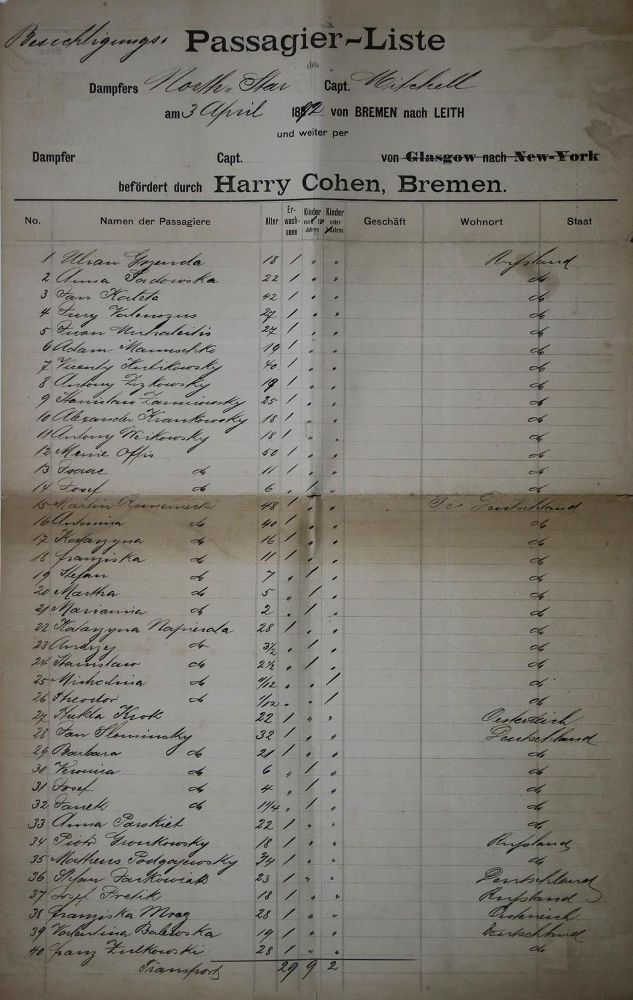 Besichtigungs-
Passagier-Liste
des
Dampfers North-Star Capt. Mitchell
am 3 April 1892 von BREMEN nach LEITH
und weiter per
Dampfer Capt. von Glasgow nach New-York
befördert durch Harry Cohen, Bremen.
No. Namen der Passagiere Alter Er-wach-sene Kinder Jahren Kinder unter Jahren Geschäft Wohnort Staat
1 18 1 " " Rußland
2 Anna Sadowska 22 1 " " do
3 Jan 42 1 " " do
4 27 1 " " do
5 Iwan 27 1 " " do
6 Adam 19 1 " " do
7 Vicenty 40 1 " " do
8 Antony 19 1 " " do
9 Stanislaw 25 1 " " do
10 Alexander Krankowsky 18 1 " " do
11 Antony Werkowsky 18 1 " " do
12 Offis 50 1 " " do
13 Isaac do 11 1 " " do
14 Josef do 6 " 1 " do
15 Martin 48 1 " " Deutschland
16 Antonina do 40 1 " " do
17 Katarzyna do 16 1 " " do
18 Franziska do 11 1 " " do
19 Stefan do 7 " 1 " do
20 Martha do 5 " 1 " do
21 Marianna do 2 " 1 " do
22 Katarzyna Napierala 28 1 " " do
23 Andrzej do 3½ " 1 " do
24 Stanislaw do 2½ " 1 " do
25 Michalina do " " 1 do
26 Theodor do " " 1 do
27 Krok 22 1 " " Oesterreich
28 Jan Slominsky 32 1 " " Deutschland
29 Barbara do 21 1 " " do
30 Veronica do 6 " 1 " do
31 Josef do 4 " 1 " do
32 Janek do 1¼ " 1 " do
33 Anna 22 1 " " do
34 Piotr Gronkowsky 18 1 " " Rußland
35 Matheus Podgajewsky 34 1 " " do
36 Stefan 23 1 " " Deutschland
37 Josef 18 1 " " Rußland
38 Franziska Mraz 28 1 " " Oesterreich
39 Valentina 19 1 " " Deutschland
40 Franz 28 1 " " do
Transport 29 9 2